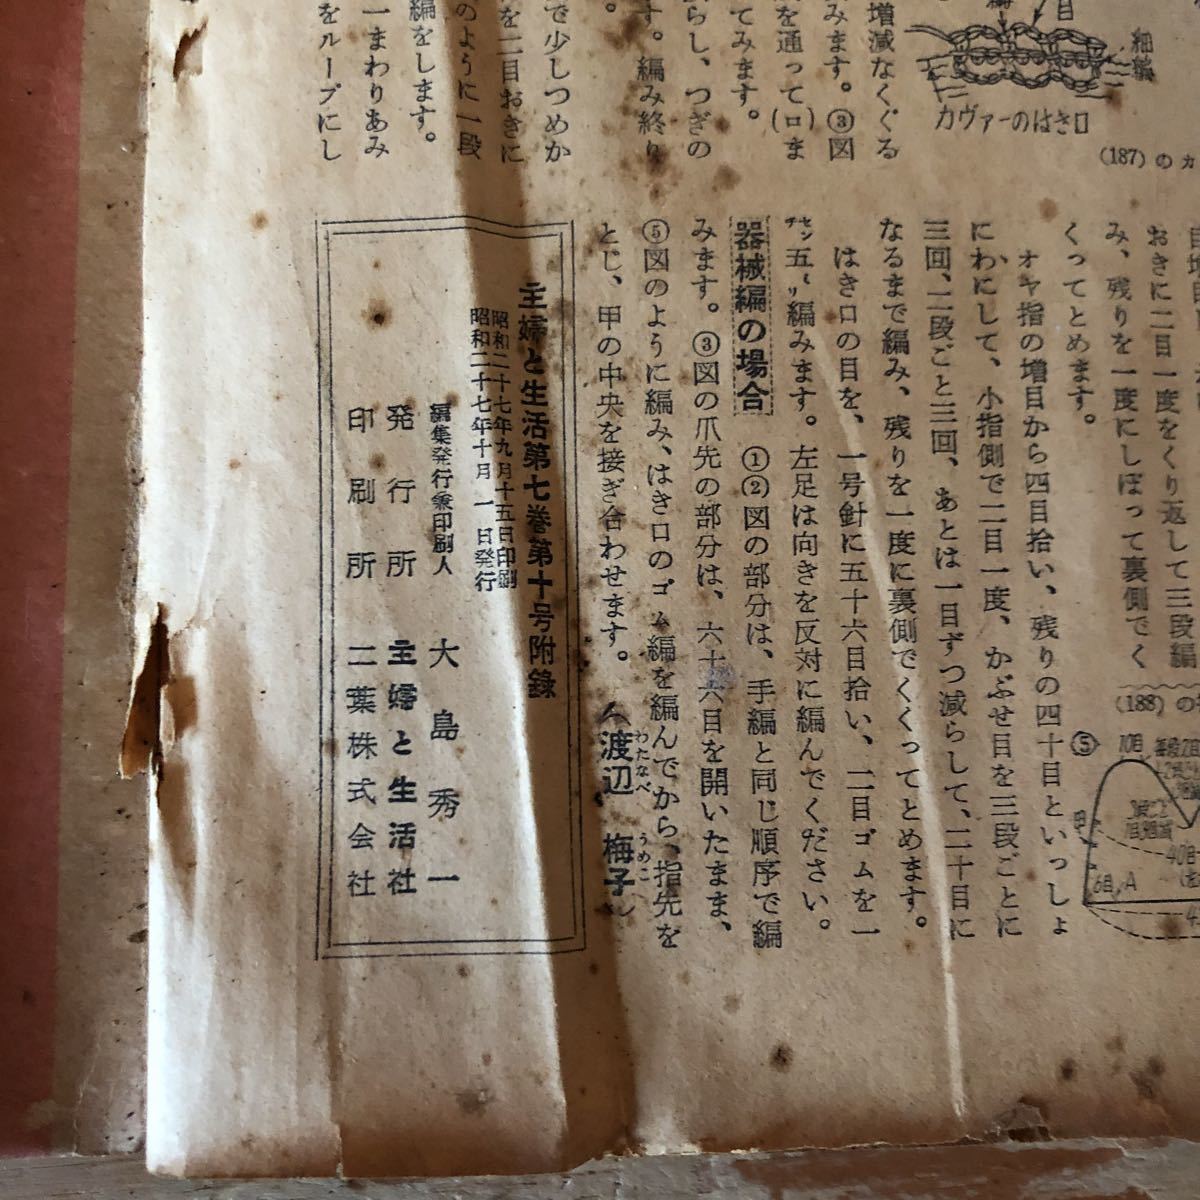 細編
目
カヴァーのはき口
(187)のカ
増減なくぐる
みます。③図
を通って(ロま
てみます。
らし、つぎの
す。編み終り
で少しつめか
を二目おきに
のように一段
編をします。
一まわりあみ
をループにし
おきに二目一度をくり返して三段編
み、残りを一度にしぼって裏側でく
くってとめます。
オヤ指の増目から四目拾い、残りの四十目といっしょ
にわにして、小指側で二目一度、かぶせ目を三段ごとに
三回、二段ごと三回、あとは一目ずつ減らして、二十目に
なるまで編み、残りを一度に裏側でくくってとめます。
はき口の目を、一号針に五十六目拾い、二目ゴムを一
五センチ編みます。左足は向きを反対に編んでください。
器械編の場合 ①②図の部分は、手編と同じ順序で編
みます。③図の爪先の部分は、六十六目を開いたまま、
⑤図のように編み、はき口のゴム編を編んでから、指先を
とじ、甲の中央を接ぎ合わせます。 (渡辺 梅子)
わたなべ うめこ
(188)の
⑤
10目
40目
6目
A
主婦と生活第七巻第十号附録
昭和二十七年九月十五日印刷
昭和二十七年十月 一 日発行
編集発行兼印刷人 大島秀一
発行所 主婦と生活社
印刷所 二葉株式会社